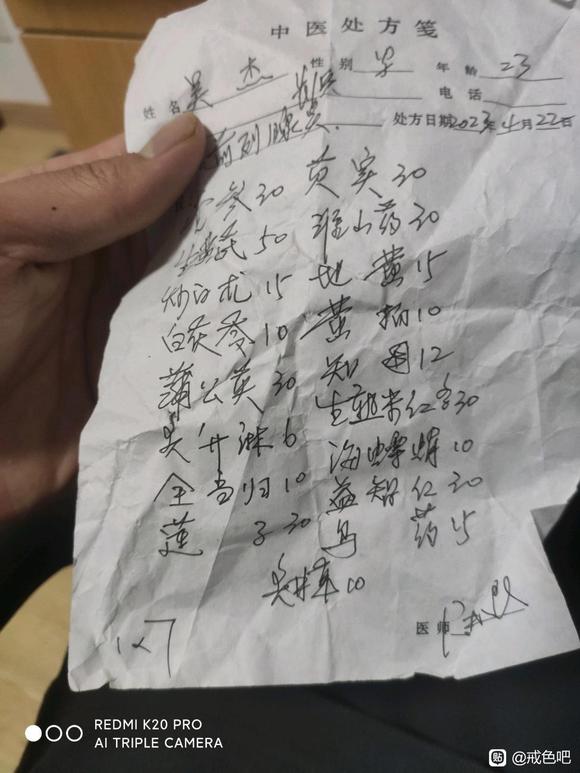 中医处方笺
姓名 吴杰 性别 男 年龄 23
电话
前列腺炎. 处方日期 2023年4月22日
党参30 芡实30
生黄芪50 淮山药30
炒白术15 地黄15
白茯苓10 黄柏10
蒲公英30 知母12
升麻6 生薏米仁30
全当归10 海螵蛸10
莲子30 益智仁30
乌药15
10
1x7
医师
REDMI K20 PRO
AI TRIPLE CAMERA
贴 @戒色吧